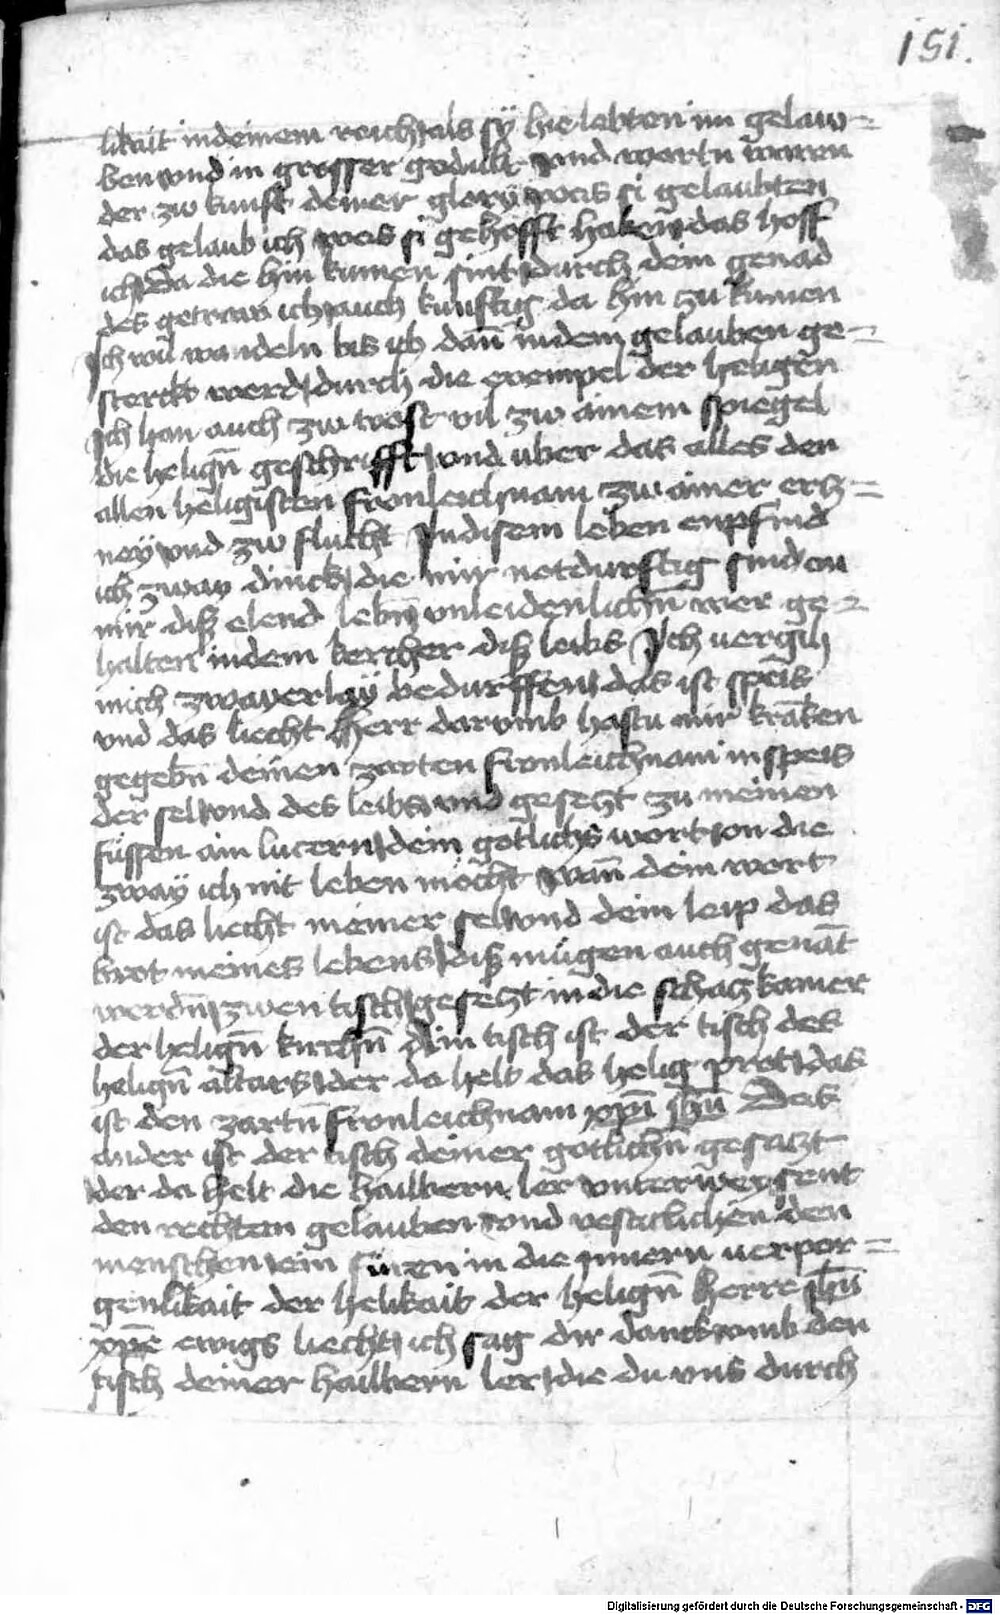 151.
likait in deinem reich als sy hie lebten im gelaw=
ben vnd in grosser gedult vnd wartn waren
der zw kunft deiner glory was si gelaubten
das gelaub ich was si gehofft haben das hoff
ich Da die hin kumen sint durch dein genad
des getraw ich auch kunftig da hin zu kumen
Ich wil wandeln bis ich dan̄ in dem gelauben ge=
sterckt werd durch die exempel der heligen
Ich han auch zw trost vil zw ainem spiegel
die helign̄ geschrifft vnd uber das alles den
allen heligisten fronleichnam zw ainer ercz=
ney vnd zw flucht In disem leben enpfind
ich zway dinck die mir notdurftig sind on
mir diß elend lebn̄ vnleidenlichn̄ wer ge=
halten in dem kercher diß leibs Ich uergih
mich zwayerlay bedurffen das ist speis
vnd das liecht Herr darumb hastu mir krācken
gegebn̄ deinen zarten fronleichnam in speis
der sel vnd des leibs vnd geseczt zu meinen
füssen ain lucern dein gotlichs wort on die
zway ich nit leben möcht wan̄ dein wort
ist das liecht meiner sel vnd dein leip das
brot meines lebens diß mügen auch genāt
werdn̄ zwen tisch geseczt in die schaczkamer
der helign̄ kirchn̄ Ain tisch ist der tisch des
helign̄ altars der da helt das helig prot das
ist den zartn̄ fronleichnam xp̄i ih̄u Der
ander ist der tisch deiner gotlichn̄ gesaczt
der da helt die hailbern ler vnterweysent
den rechten gelauben vnd vestiklichen den
menschen ein füren in die Innern uerpor=
genlikait der helikait der helign̄ Herre ih̄u
xp̄e ewigs liecht ich sag dir danck vmb den
tisch deiner hailbern ler die du vns durch
Digitalisierung gefördert durch die Deutsche Forschungsgemeinschaft - DFG